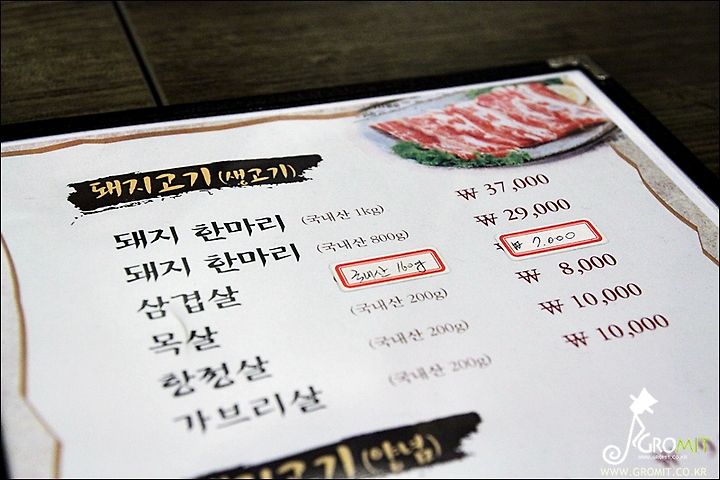 돼지고기 (생고기)
돼지 한마리 (국내산 1kg) ₩ 37,000
돼지 한마리 (국내산 800g) ₩ 29,000
삼겹살 국내산 160g ₩ 7.000
목살 (국내산 200g) ₩ 8,000
항정살 (국내산 200g) ₩ 10,000
가브리살 (국내산 200g) ₩ 10,000
돼지고기 (양념)
GROMIT
WWW.GROMIT.CO.KR
WWW.GROMIT.CO.KR